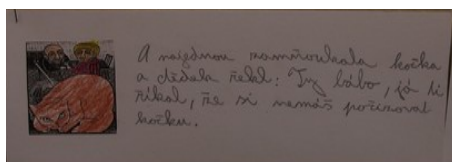 A najednou zamňoukala kočka
a dědek řekl: "Ty bábo, já ti
říkal, že si nemáš pořizovat
kočku.